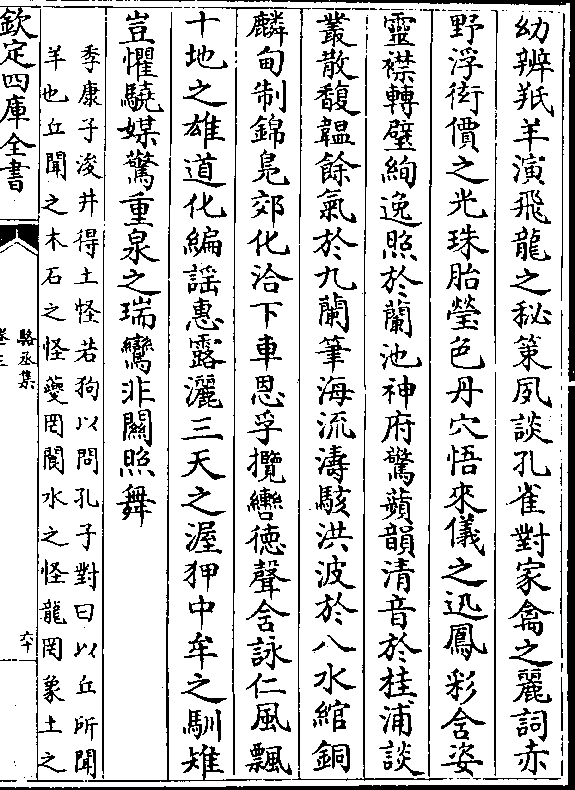 幼辨羝羊演飛龍之秘策夙談孔雀對家禽之麗詞赤
野浮街價之光珠胎瑩色丹穴悟來儀之迅鳳彩含姿
靈襟轉璧絢逸照於蘭池神府驚蘋韻清音於桂浦談
叢散馥韞餘氣於九蘭筆海流濤駭洪波於八水綰銅
麟甸制錦鳧郊化洽下車恩孚攬轡徳聲含詠仁風飄
十地之雄道化編謡惠露灑三天之渥狎中牟之馴雉
豈懼驍媒驚重泉之瑞鸞非闗照舞
季康子浚井得土怪若狗以問孔子對曰以丘所聞
羊也丘聞之木石之怪夔罔閬水之怪龍罔象土之
欽定四庫全書
駱丞集
卷三
六十